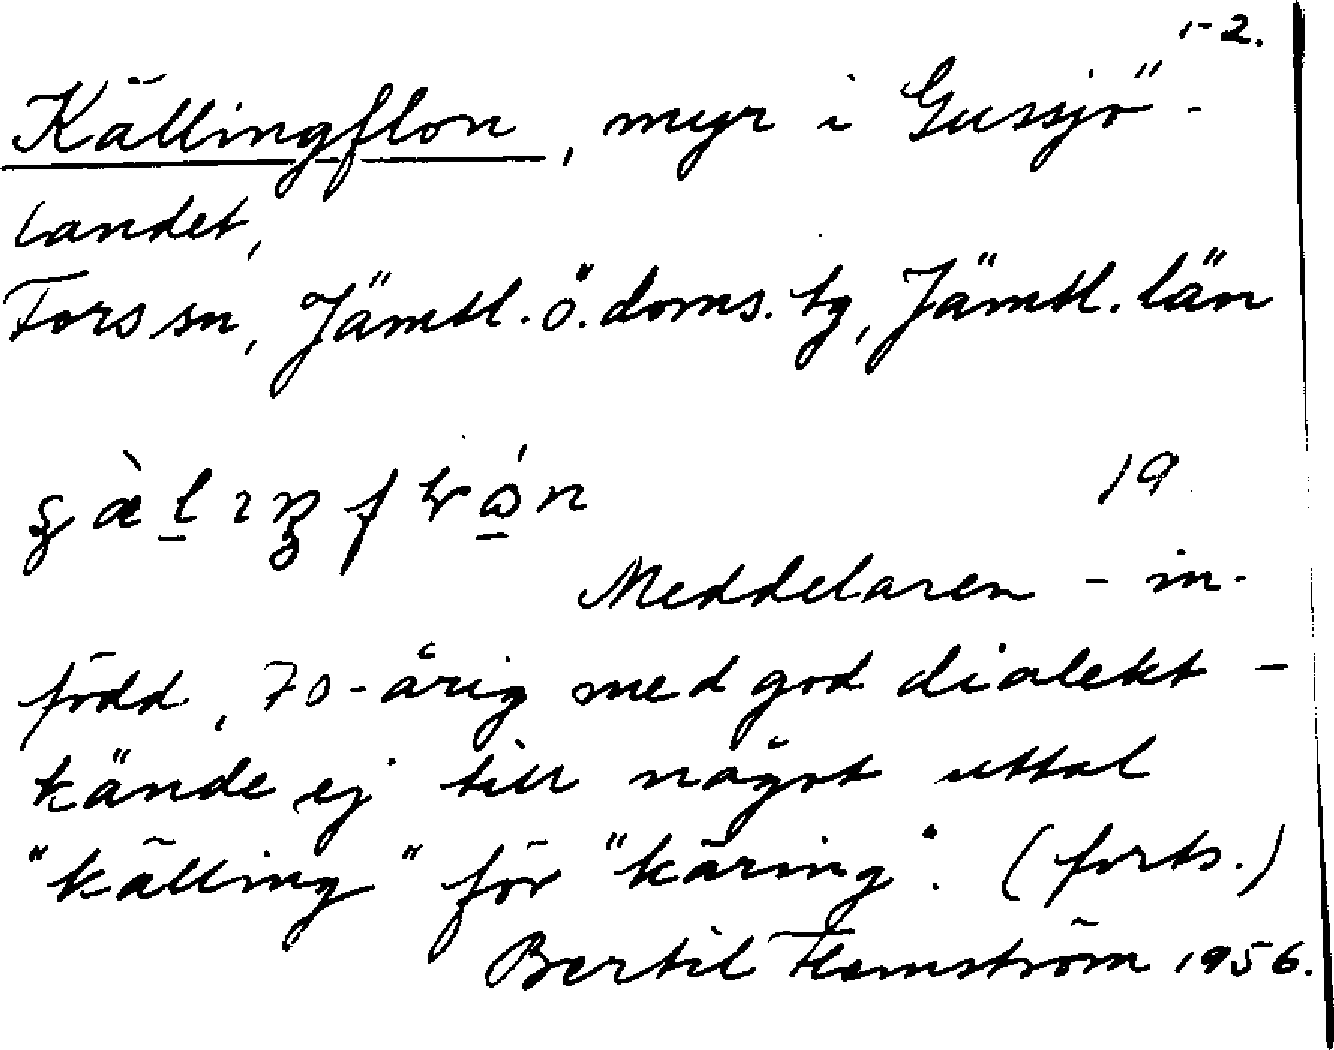 1-2.
Källingflon, myr i Gussjö-
landet,
Fors sn, Jämtl. ö. doms. tg, Jämtl. län
19
Meddelaren - in-
född, 70-årig med god dialekt -
kände ej till något uttal
"källing" för "käring". (forts.)
Bertil Flemström 1956.